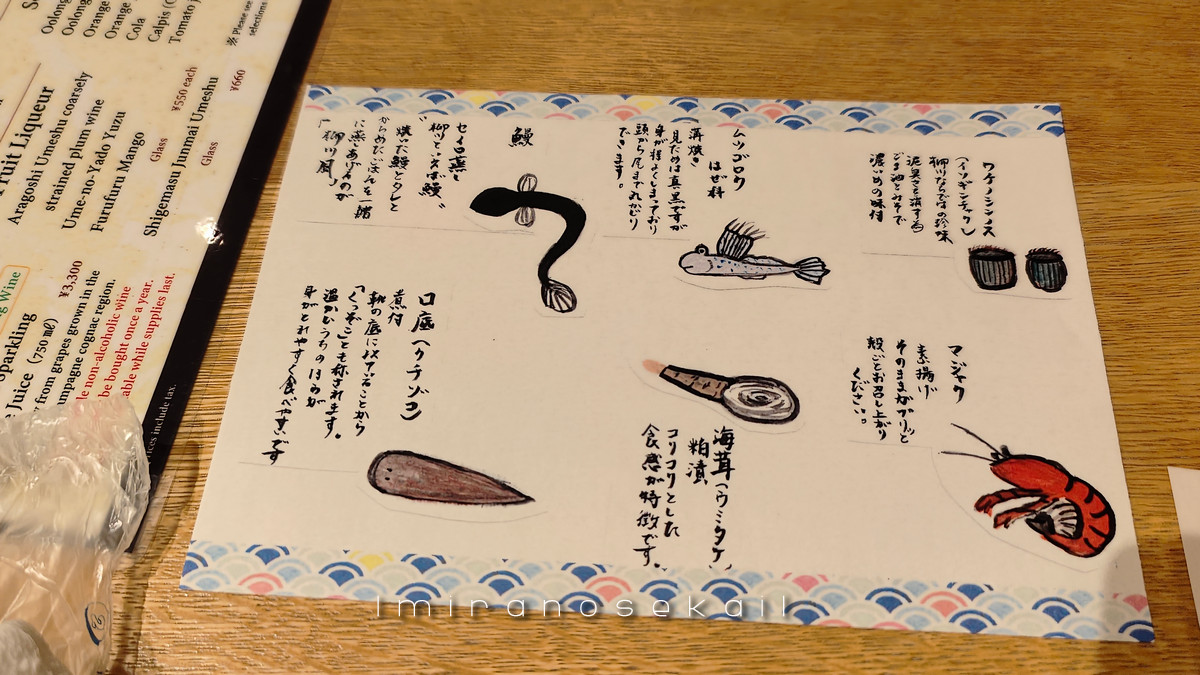 ワケノシンノス
(イソギンチャク)
柳川ならではの珍味
泥臭さを消す為
ごま油とみそで
濃いめの味付
ムツゴロウ
はぜ科
満焼き
見ためは真黒ですが
身が程よくしまっており
頭から尾まで丸かじり
できます。
鰻
セイロ蒸し
"柳川といえば鰻"
焼いた鰻とタレと
からめたごはんを一緒
に蒸しあげるのが
「柳川風」
マジャク
素揚げ
そのままガブリッと
殻ごとお召し上がり
ください。
海茸(ウミタケ)
粕漬
コリコリとした
食感が特徴です。
口底(クチゾコ)
煮付
靴の底に似ていることから
「くつぞこ」とも称されます。
温かいうちのほうが
身がとれやすく食べやすいです
Oolong
Oolong
Orange
Orange
Cola
Calpis
Tomato
※ Please see
selections
Fruit Liqueur
Aragoshi Umeshu coarsely
strained plum wine
Ume-no-Yado Yuzu
Furufuru Mango
Glass ¥550 each
Shigemasu Junmai Umeshu
Glass ¥660
Wine
Sparkling
Juice (750㎖) ¥3,300
from grapes grown in the
champagne cognac region.
non-alcoholic wine
be bought once a year.
while supplies last.
prices include tax.
Imiranosekail